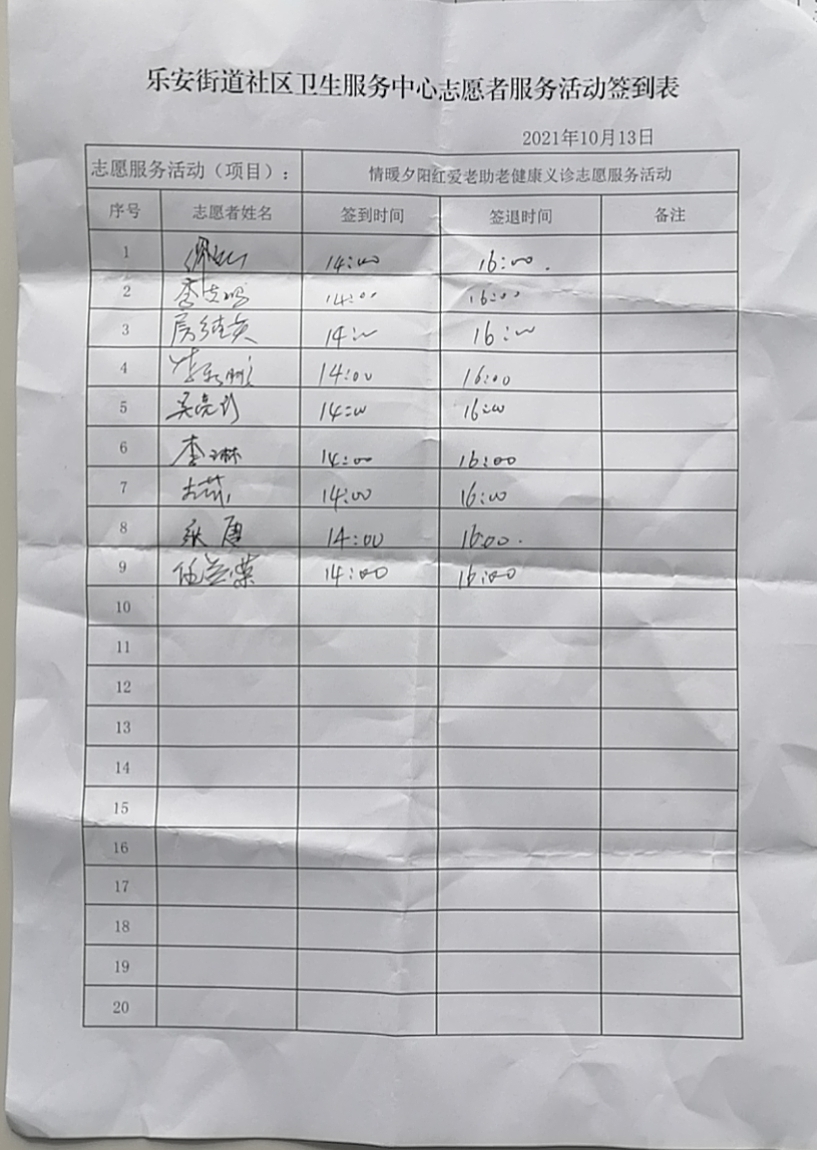 乐安街道社区卫生服务中心志愿者服务活动签到表
2021年10月13日
志愿服务活动（项目）： 情暖夕阳红爱老助老健康义诊志愿服务活动
序号 志愿者姓名 签到时间 签退时间 备注
1 14:00 16:00
2 14:00 16:00
3 14:00 16:00
4 14:00 16:00
5 14:00 16:00
6 李琳 14:00 16:00
7 14:00 16:00
8 14:00 16:00
9 14:00 16:00
10
11
12
13
14
15
16
17
18
19
20